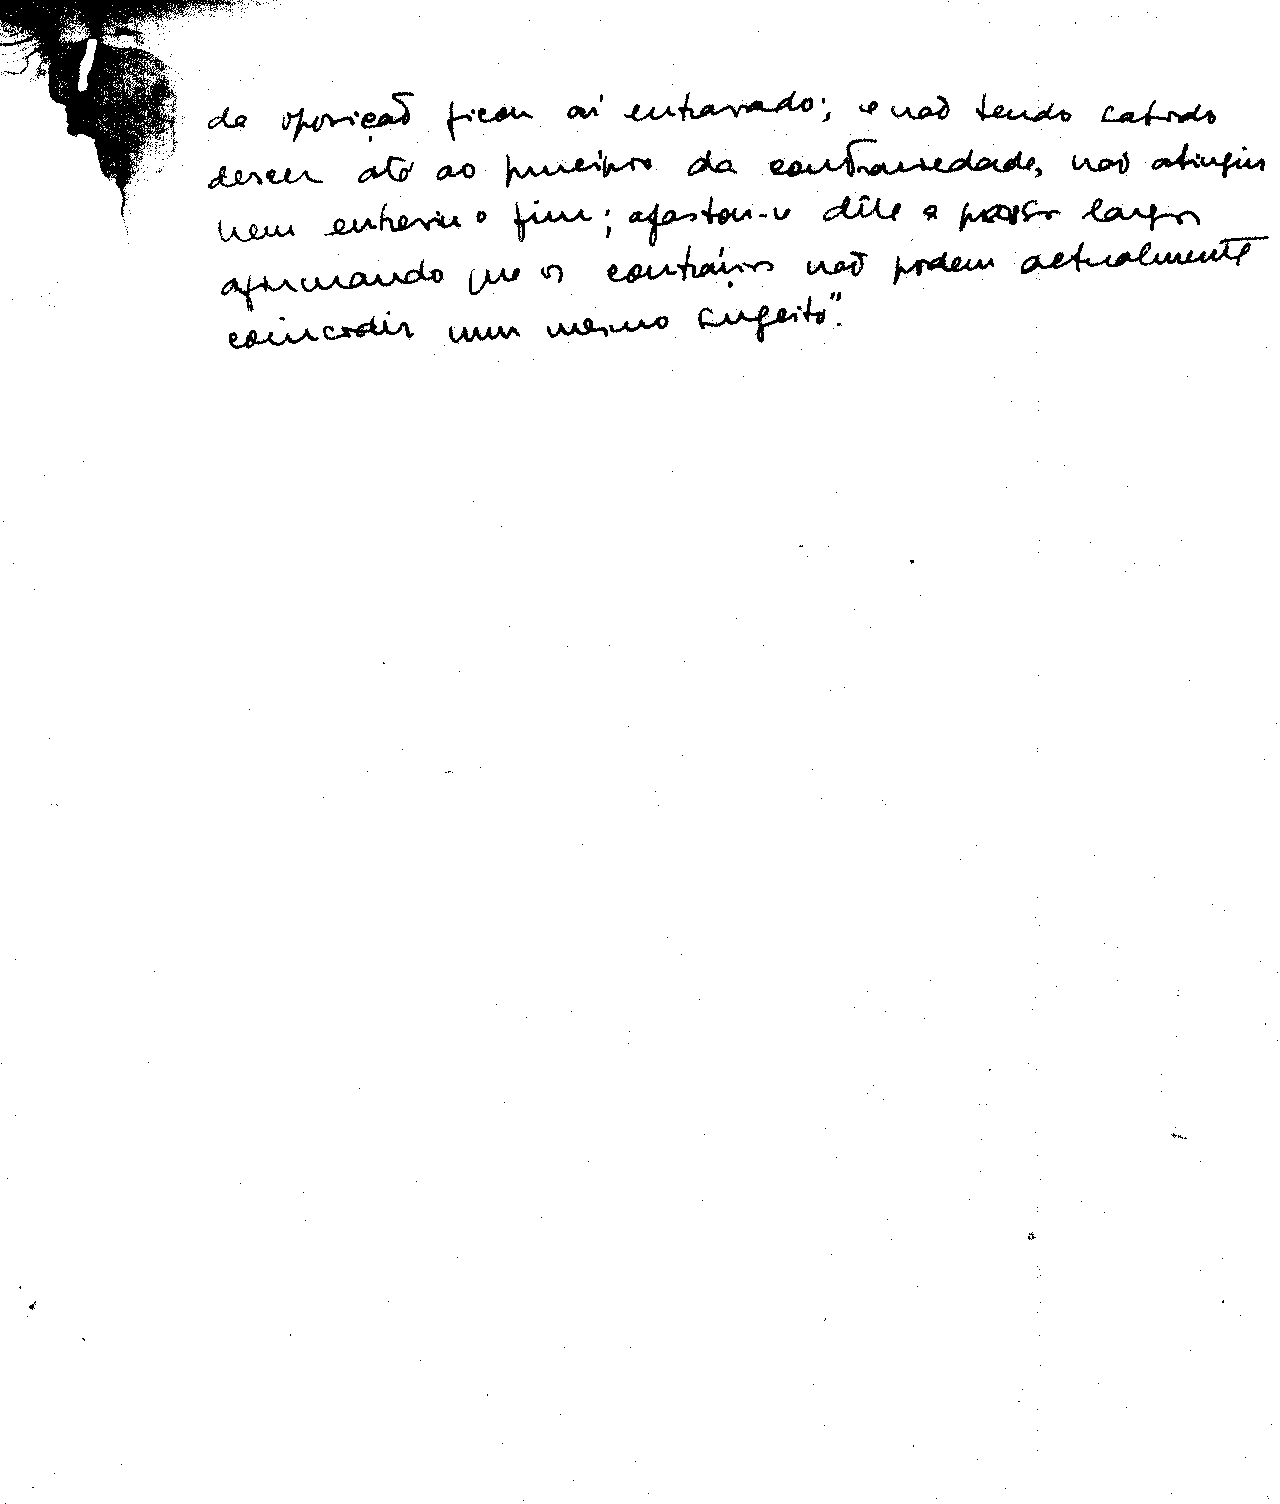 da oposição ficou aí entravado; e não tendo sabido
descer até ao princípio da contrariedade, não atingiu
nem enteviu o fim; afastou-se dêle a passo largo
afirmando que os contrários não podem actualmente
coincidir num mesmo sujeito".